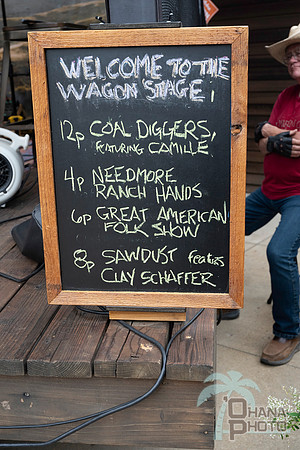 WELCOME TO THE
WAGON STAGE,
12p COAL DIGGERS,
FEATURING CAMILLE
4p NEEDMORE
RANCH HANDS
6p GREAT AMERICAN
FOLK SHOW
8p SAWDUST featurs
CLAY SCHAFFER
'OHANA
PHOTO